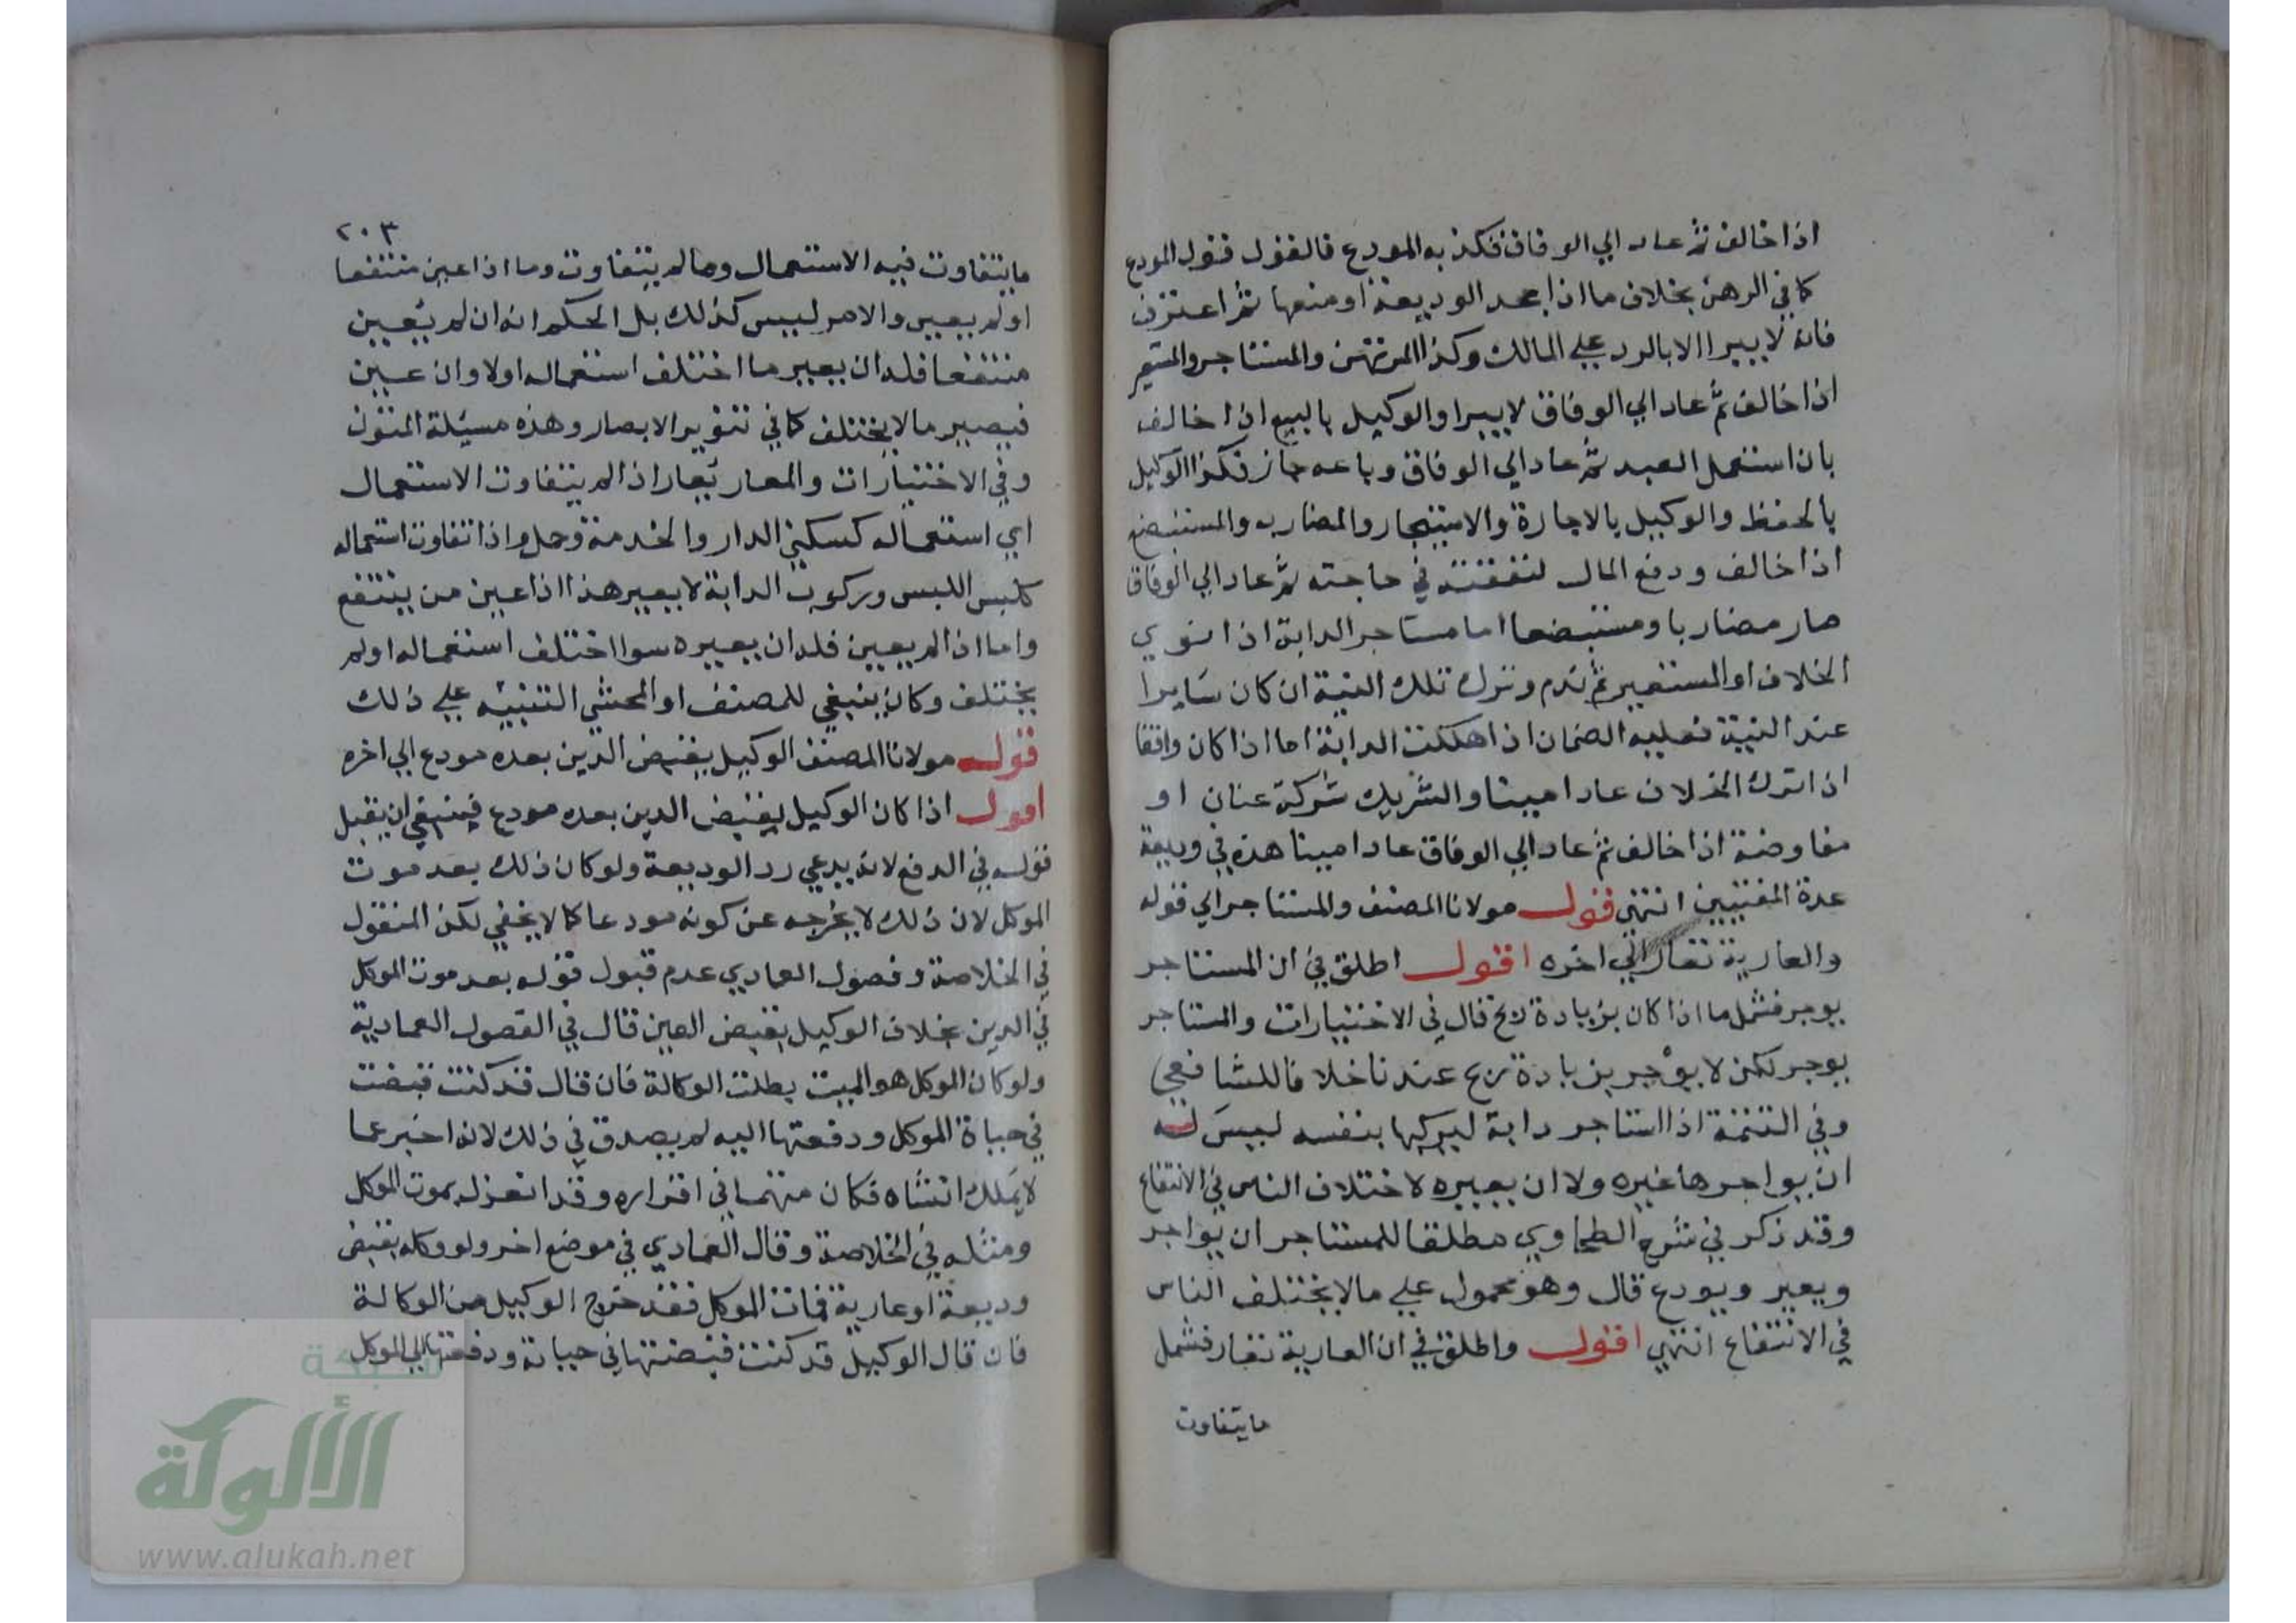 اذا خالف ثم عاد الي الوفاق فكذبه المودع فالقول قول المودع
كما في الرهن بخلاف ما اذا جحد الوديعة او منعها ثم اعترف
فانه لا يبرا الا بالرد علي المالك وكذا المرتهن والمستاجر والمستعير
اذا خالف ثم عاد الي الوفاق لا يبرا والوكيل بالبيع اذا خالف
بان استعمل العبد ثم عاد الي الوفاق وباعه جاز فكذا الوكيل
بالحفظ والوكيل بالاجارة والاستيجار والمضارب والمستبضع
اذا خالف ودفع المال لنفقته في حاجته ثم عاد الي الوفاق
صار مضاربا ومستبضعا اما مستاجر الدابة اذا نوي
الخلاف او المستعير ثم ندم وترك تلك النية ان كان سايرا
عند النية فعليه الضمان اذا هلكت الدابة اما اذا كان واقفا
اذا ترك الخلاف عاد امينا والشريك شركة عنان او
مفاوضة اذا خالف ثم عاد الي الوفاق عاد امينا هذه في وديعة
عدة المفتيين انتهي قوله مولانا المصنف والمستاجر الي قوله
والعارية تعار الي اخره اقول اطلق في ان المستاجر
يوجر فشمل ما اذا كان بزيادة ربح قال في الاختيارات والمستاجر
يوجر لكن لا يوجر بزيادة ربح عندنا خلافا للشافعي
وفي التتمة اذا استاجر دابة ليركبها بنفسه ليس له
ان يواجرها غيره ولا ان يعيره لاختلاف الناس في الانتفاع
وقد ذكر في شرح الطحاوي مطلقا للمستاجر ان يواجر
ويعير ويودع قال وهو محمول علي ما لا يختلف الناس
في الانتفاع انتهي اقول واطلق في ان العارية تعار فشمل
ما يتفاوت
٢٠٣
ما يتفاوت فيه الاستعمال وما لم يتفاوت وما اذا عين منتفعا
او لم يعين والامر ليس كذلك بل الحكم انه ان لم يعين
منتفعا فله ان يعير ما اختلف استعماله او لا وان عين
فيعير ما لا يختلف كما في تنوير الابصار وهذه مسيلة المتون
وفي الاختيارات والمعار يعار اذا لم يتفاوت الاستعمال
اي استعماله كسكني الدار والخدمة وحمل واذا تفاوت استعماله
كلبس اللبس وركوب الدابة لا يعير هذا اذا عين من ينتفع
واما اذا لم يعين فله ان يعيره سوا اختلف استعماله او لم
يختلف وكان ينبغي للمصنف او المحشي التنبيه علي ذلك
قوله مولانا المصنف الوكيل بقبض الدين بعده مودع الي اخره
اقول اذا كان الوكيل بقبض الدين بعده مودع فينبغي ان يقبل
قوله في الدفع لانه يدعي رد الوديعة ولو كان ذلك بعد موت
الموكل لان ذلك لا يخرجه عن كونه مودعا كما لا يخفي لكن المنقول
في الخلاصة وفصول العمادي عدم قبول قوله بعد موت الموكل
في الدين بخلاف الوكيل بقبض العين قال في الفصول العمادية
ولو كان الموكل هو الميت بطلت الوكالة فان قال قد كنت قبضت
في حياة الموكل ودفعتها اليه لم يصدق في ذلك لانه اخبر عما
لا يملك انشاه فكان متهما في اقراره وقد انعزل بموت الموكل
ومثله في الخلاصة وقال العمادي في موضع اخر ولو وكله بقبض
وديعة او عارية فمات الموكل فقد خرج الوكيل من الوكالة
فان قال الوكيل قد كنت قبضتها في حياته ودفعتها الي الموكل
شبكة
الألوكة
www.alukah.net